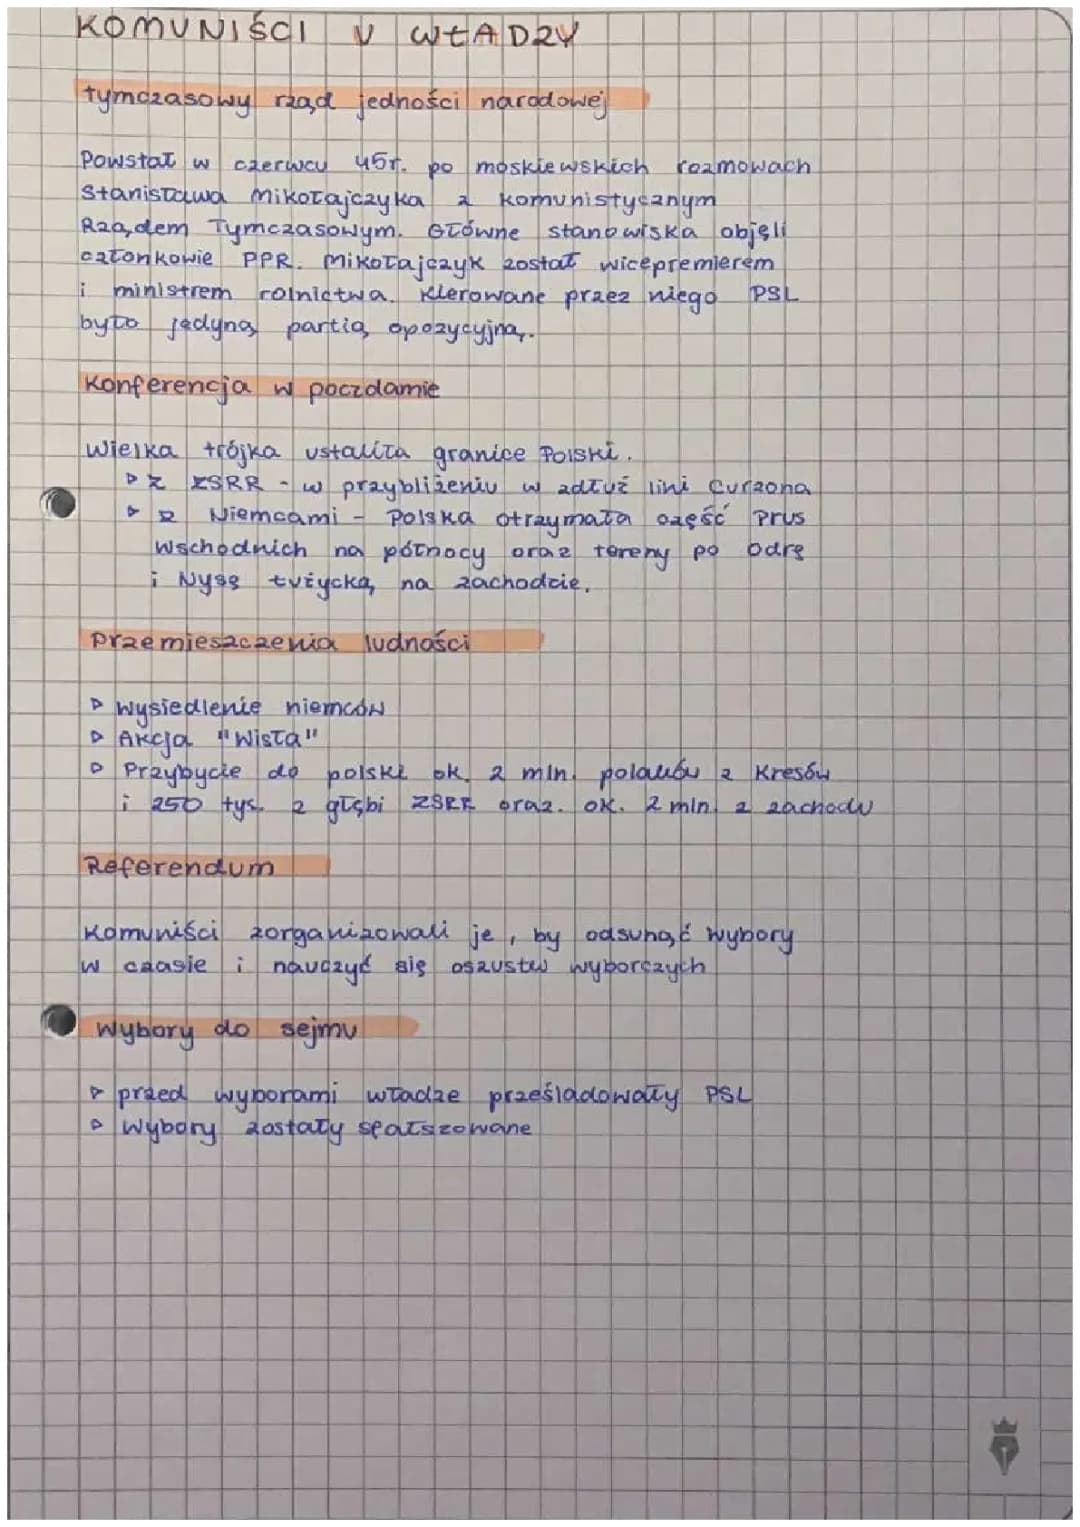 KOMUNIŚCI U WŁADZY
tymczasowy rząd jedności narodowej
Powstał w czerwcu 45r. po moskiewskich rozmowach
Stanisława Mikołajczyka z komunistycznym
Rządem Tymczasowym. Główne stanowiska objęli
członkowie PPR. Mikołajczyk został wicepremierem
i ministrem rolnictwa. Kierowane przez niego PSL
było jedyną partią opozycyjną.
Konferencja w poczdamie
Wielka trójka ustaliła granice Polski.
▷ Z ZSRR - w przybliżeniu w zdłuż lini Curzona
▷ z Niemcami - Polska otrzymała część Prus
Wschodnich na północy oraz tereny po Odrę
i Nysę Łużycką na zachodzie.
Przemieszczenia ludności
▷ wysiedlenie niemców
▷ Akcja "Wisła"
▷ Przybycie do polski ok. 2 mln. polaków z Kresów
i 250 tys. z głębi ZSRR oraz. ok. 2 mln. z zachodu
Referendum
Komuniści zorganizowali je, by odsunąć wybory
w czasie i nauczyć się oszustw wyborczych
Wybory do sejmu
▷ przed wyborami władze prześladowały PSL
▷ Wybory zostały sfałszowane